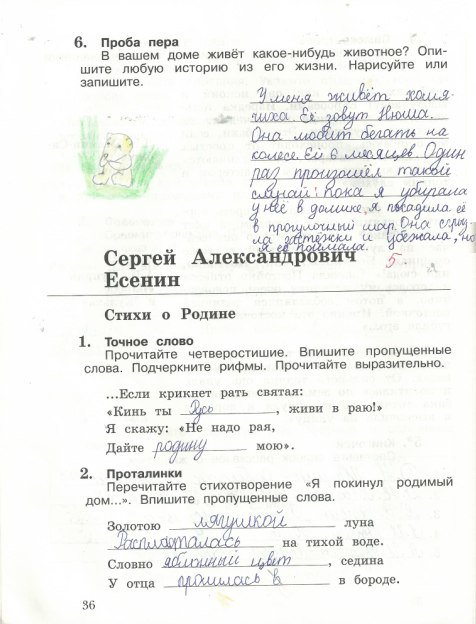 6. Проба пера
В вашем доме живёт какое-нибудь животное? Опи-
шите любую историю из его жизни. Нарисуйте или
запишите.
У меня живёт хомя-
чиха. Её зовут Нюша.
Она любит бегать на
колесе. Ей 6 месяцев. Один
раз произошёл такой
случай: пока я убирала
у неё в домике, я посадила её
в прогулочный шар. Она сгрыз-
ла застёжки и убежала, но
я её поймала.
5
Сергей Александрович
Есенин
Стихи о Родине
1. Точное слово
Прочитайте четверостишие. Впишите пропущенные
слова. Подчеркните рифмы. Прочитайте выразительно.
...Если крикнет рать святая:
«Кинь ты Русь, живи в раю!»
Я скажу: «Не надо рая,
Дайте родину мою».
2. Проталинки
Перечитайте стихотворение «Я покинул родимый
дом...». Впишите пропущенные слова.
Золотою лягушкой луна
Распласталась на тихой воде.
Словно яблонный цвет, седина
У отца пролилась в в бороде.
36